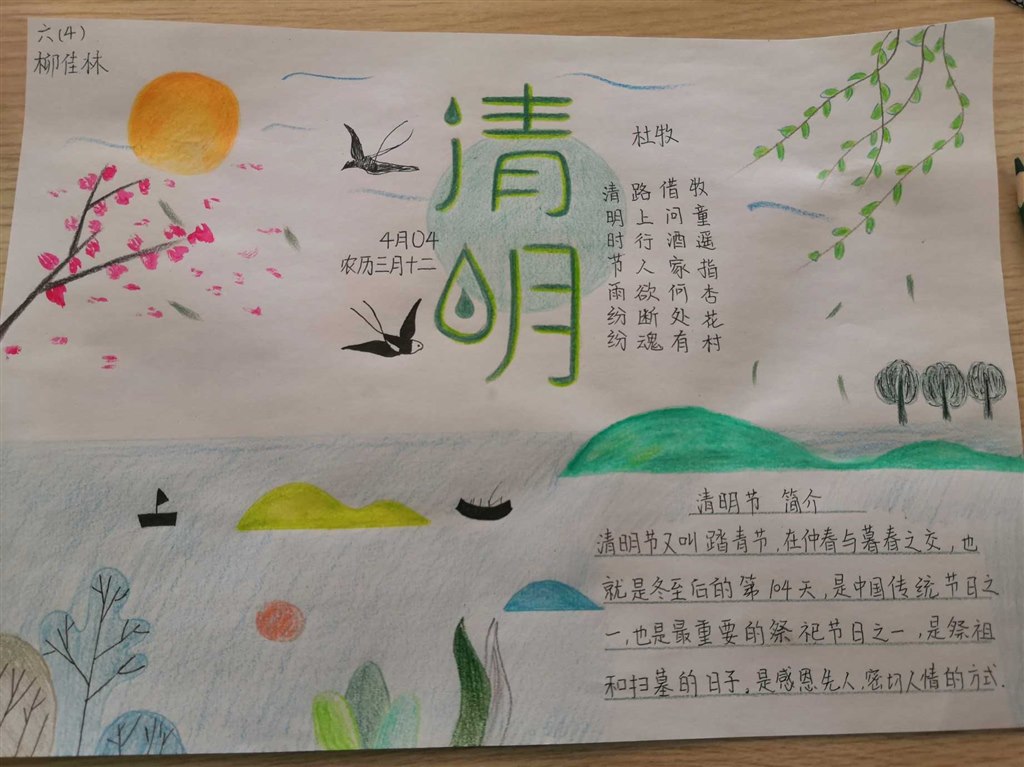 六(4)
柳佳林
清明
4月04
农历三月十二
杜牧
清明时节雨纷纷
路上行人欲断魂
借问酒家何处有
牧童遥指杏花村
清明节 简介
清明节又叫踏青节,在仲春与暮春之交,也
就是冬至后的第104天,是中国传统节日之
一,也是最重要的祭祀节日之一,是祭祖
和扫墓的日子。是感恩先人,密切人情的方式.